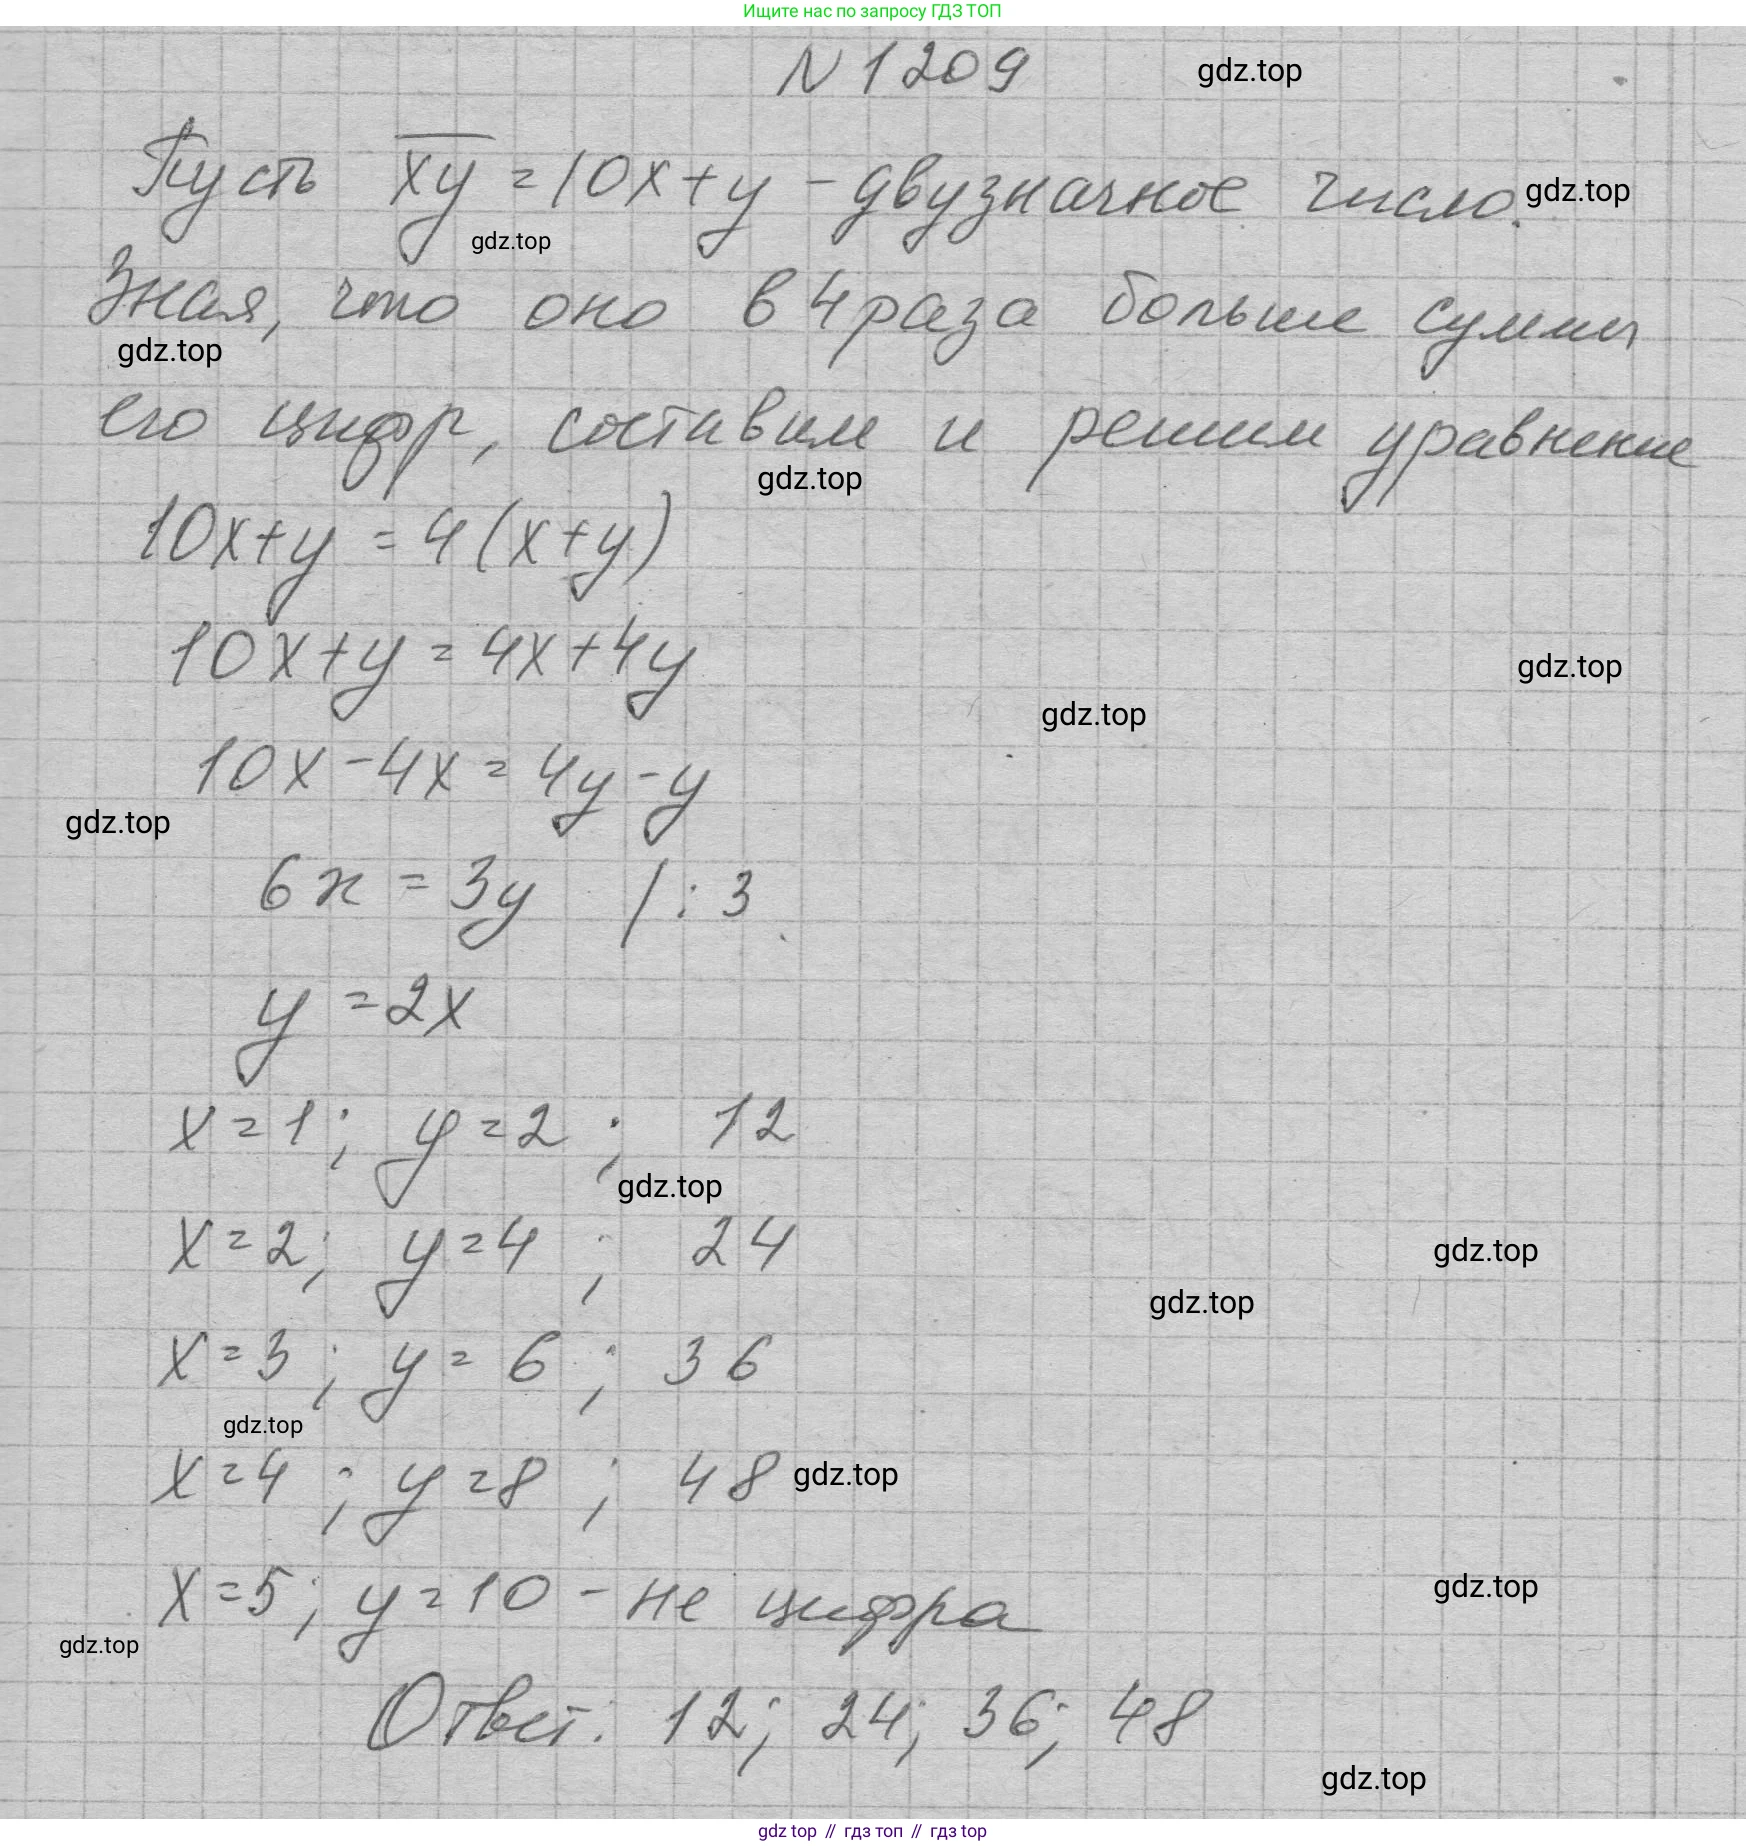 Ищите нас по запросу ГДЗ ТОП
N 1209
gdz.top
Пусть xy = 10x + y - двузначное число.
gdz.top
gdz.top
Зная, что оно в 4 раза больше суммы
gdz.top
его цифр, составим и решим уравнение
gdz.top
10x + y = 4 (x + y)
10x + y = 4x + 4y
gdz.top
gdz.top
10x - 4x = 4y - y
gdz.top
6x = 3y | : 3
y = 2x
x = 1; y = 2; 12
gdz.top
x = 2; y = 4; 24
gdz.top
gdz.top
x = 3; y = 6; 36
gdz.top
x = 4; y = 8; 48
gdz.top
x = 5; y = 10 - не цифра
gdz.top
gdz.top
Ответ: 12; 24; 36; 48
gdz.top
gdz top // гдз топ // гдз top